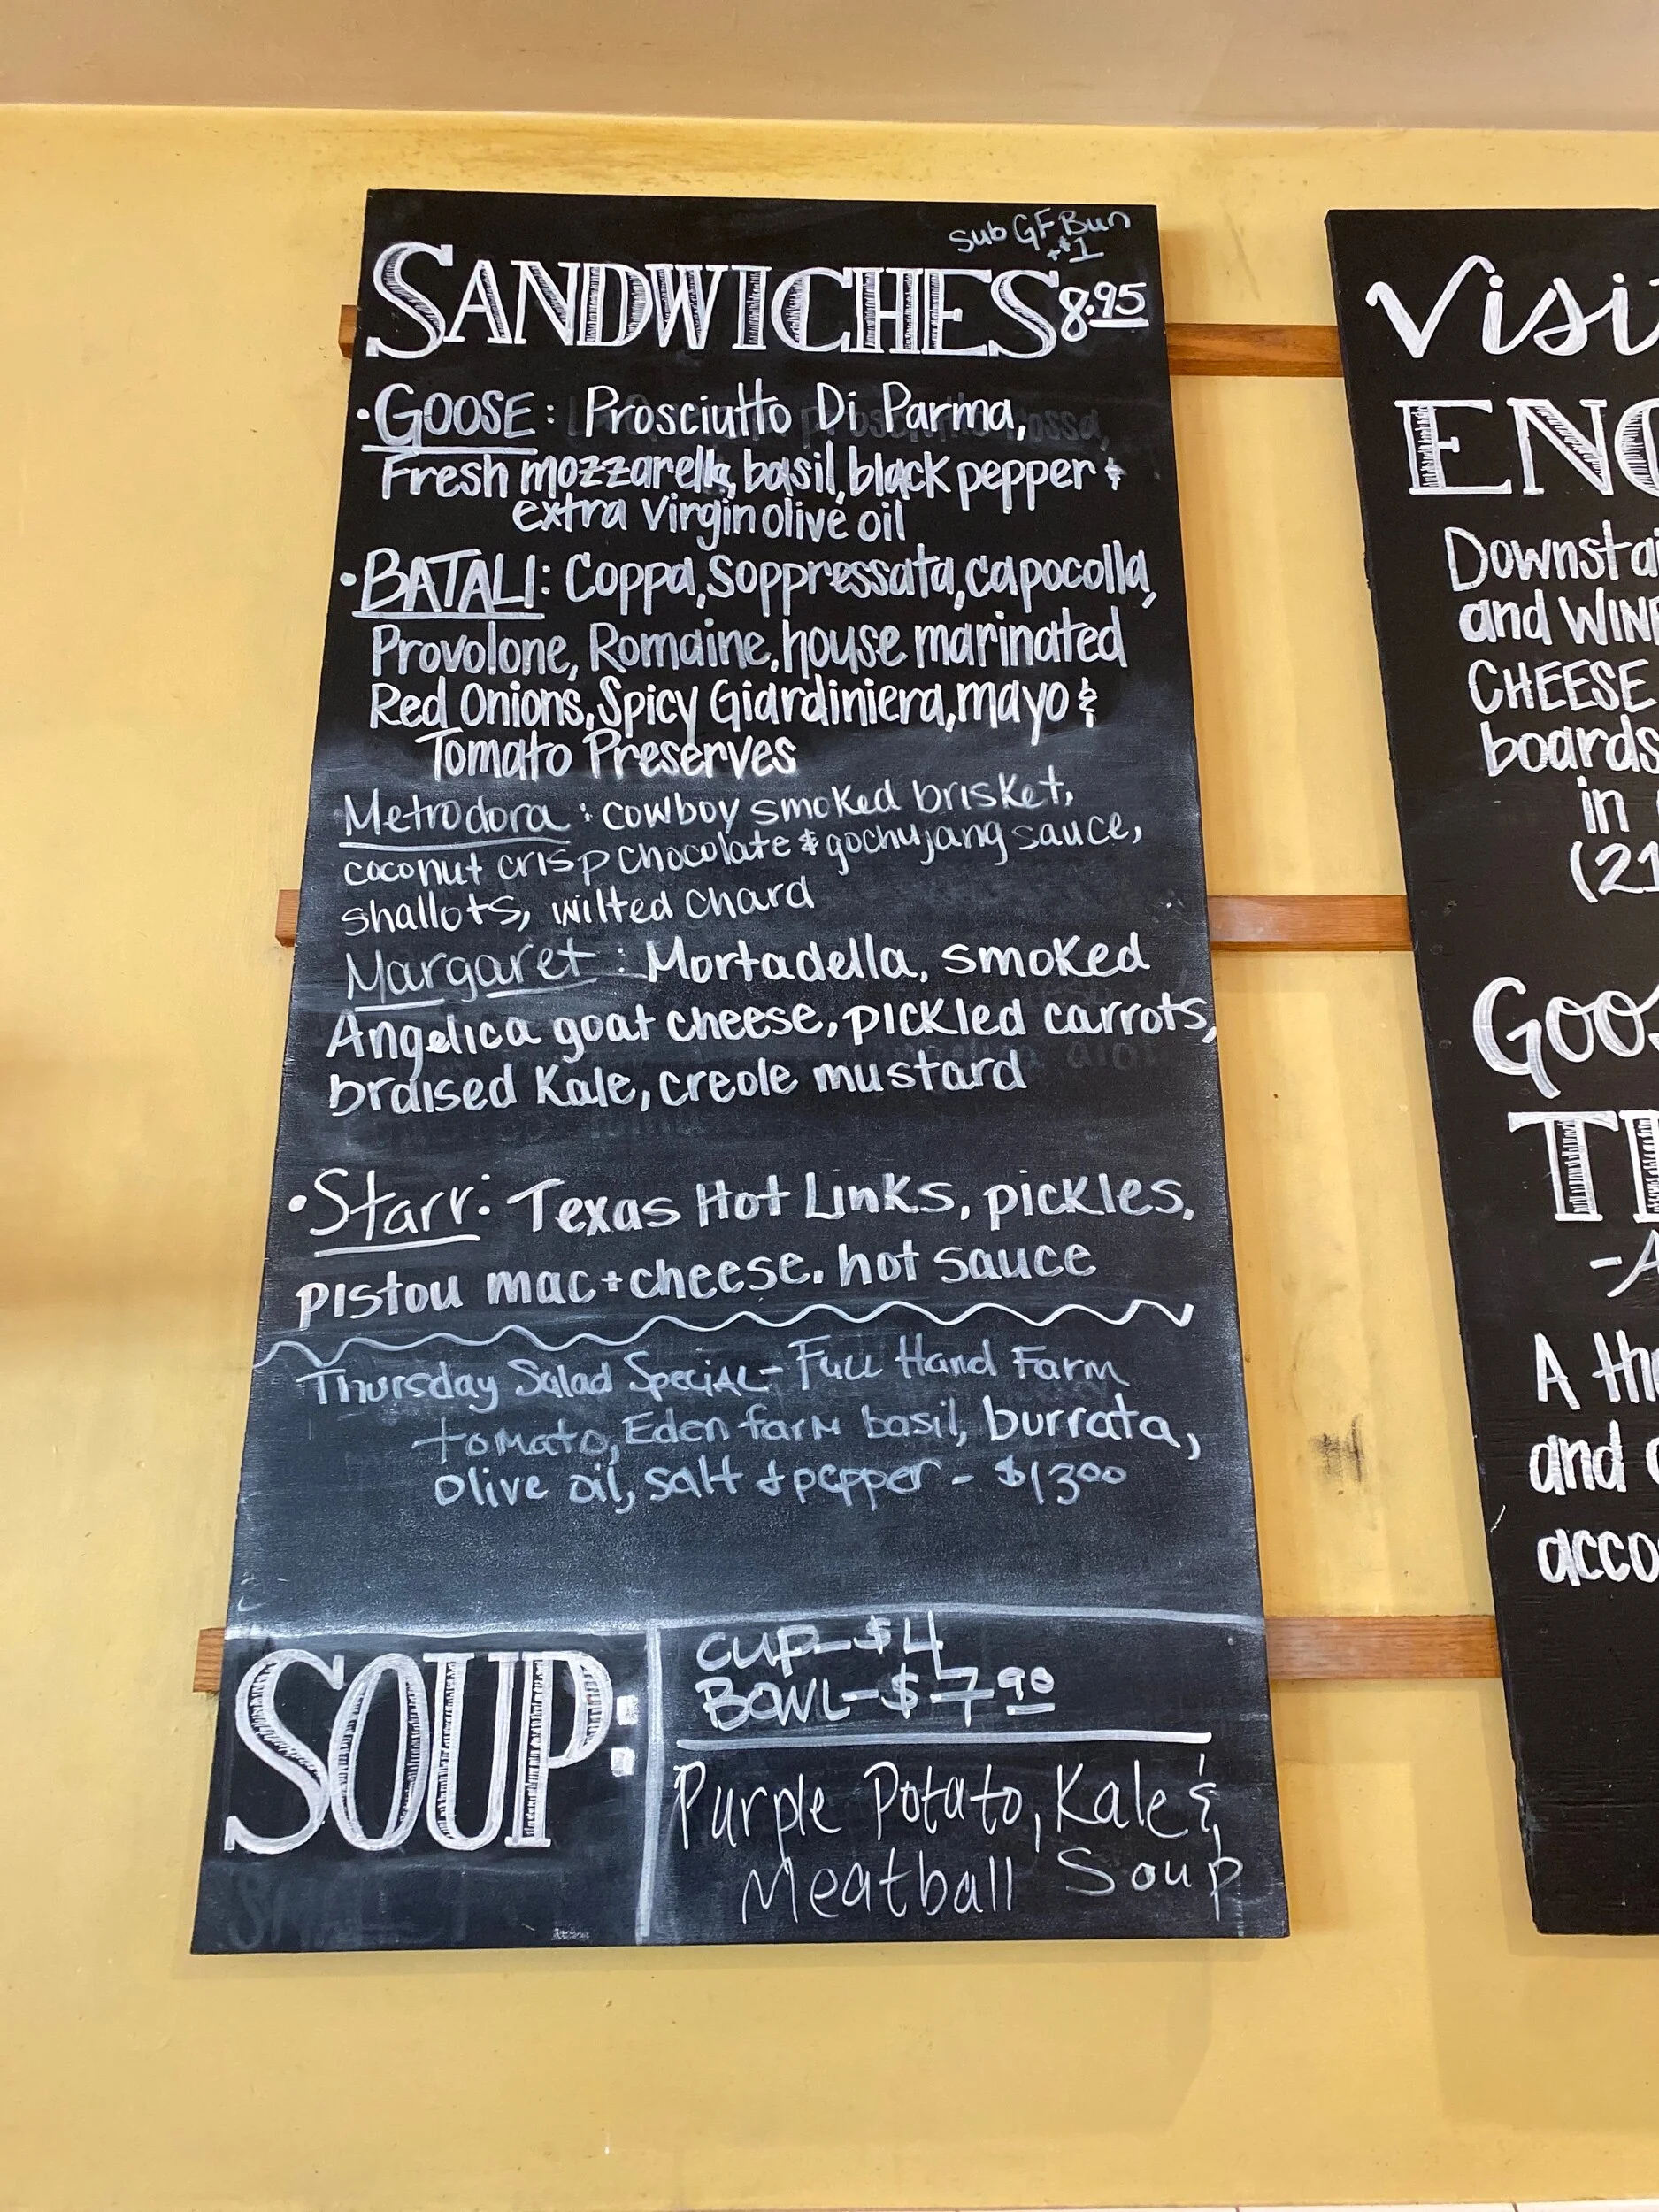 sub GF Bun
+$1
SANDWICHES 8.95
• GOOSE: Prosciutto Di Parma,
Fresh mozzarella, basil, black pepper &
extra virgin olive oil
• BATALI: Coppa, Soppressata, capocolla,
Provolone, Romaine, house marinated
Red Onions, Spicy Giardiniera, mayo &
Tomato Preserves
Metrodora: cowboy smoked brisket,
coconut crisp chocolate & gochujang sauce,
shallots, wilted chard
Margaret: Mortadella, smoked
Angelica goat cheese, pickled carrots,
braised Kale, creole mustard
• Starr: Texas Hot Links, pickles,
pistou mac+cheese, hot sauce
Thursday Salad Special - Full Hand Farm
tomato, Eden farm basil, burrata,
olive oil, salt + pepper - $13.00
SOUP:
CUP - $4
BOWL - $7.90
Purple Potato, Kale &
Meatball Soup
Visi
ENO
Downstai
and WINE
CHEESE
boards
in
(21
Goos
-A
A the
and
acco